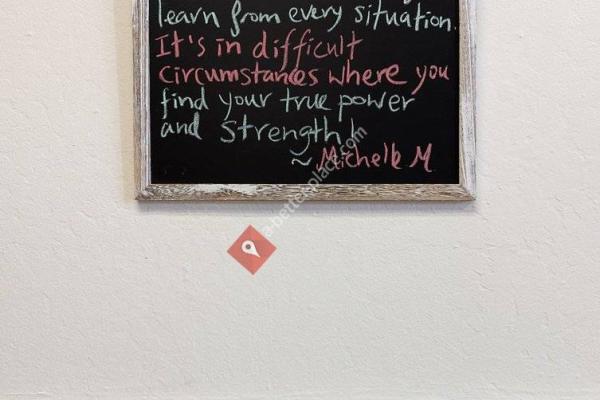 learn from every situation.
It's in difficult
circumstances where you
find your true power
and strength!
~ Michelle M
a-better-place.com